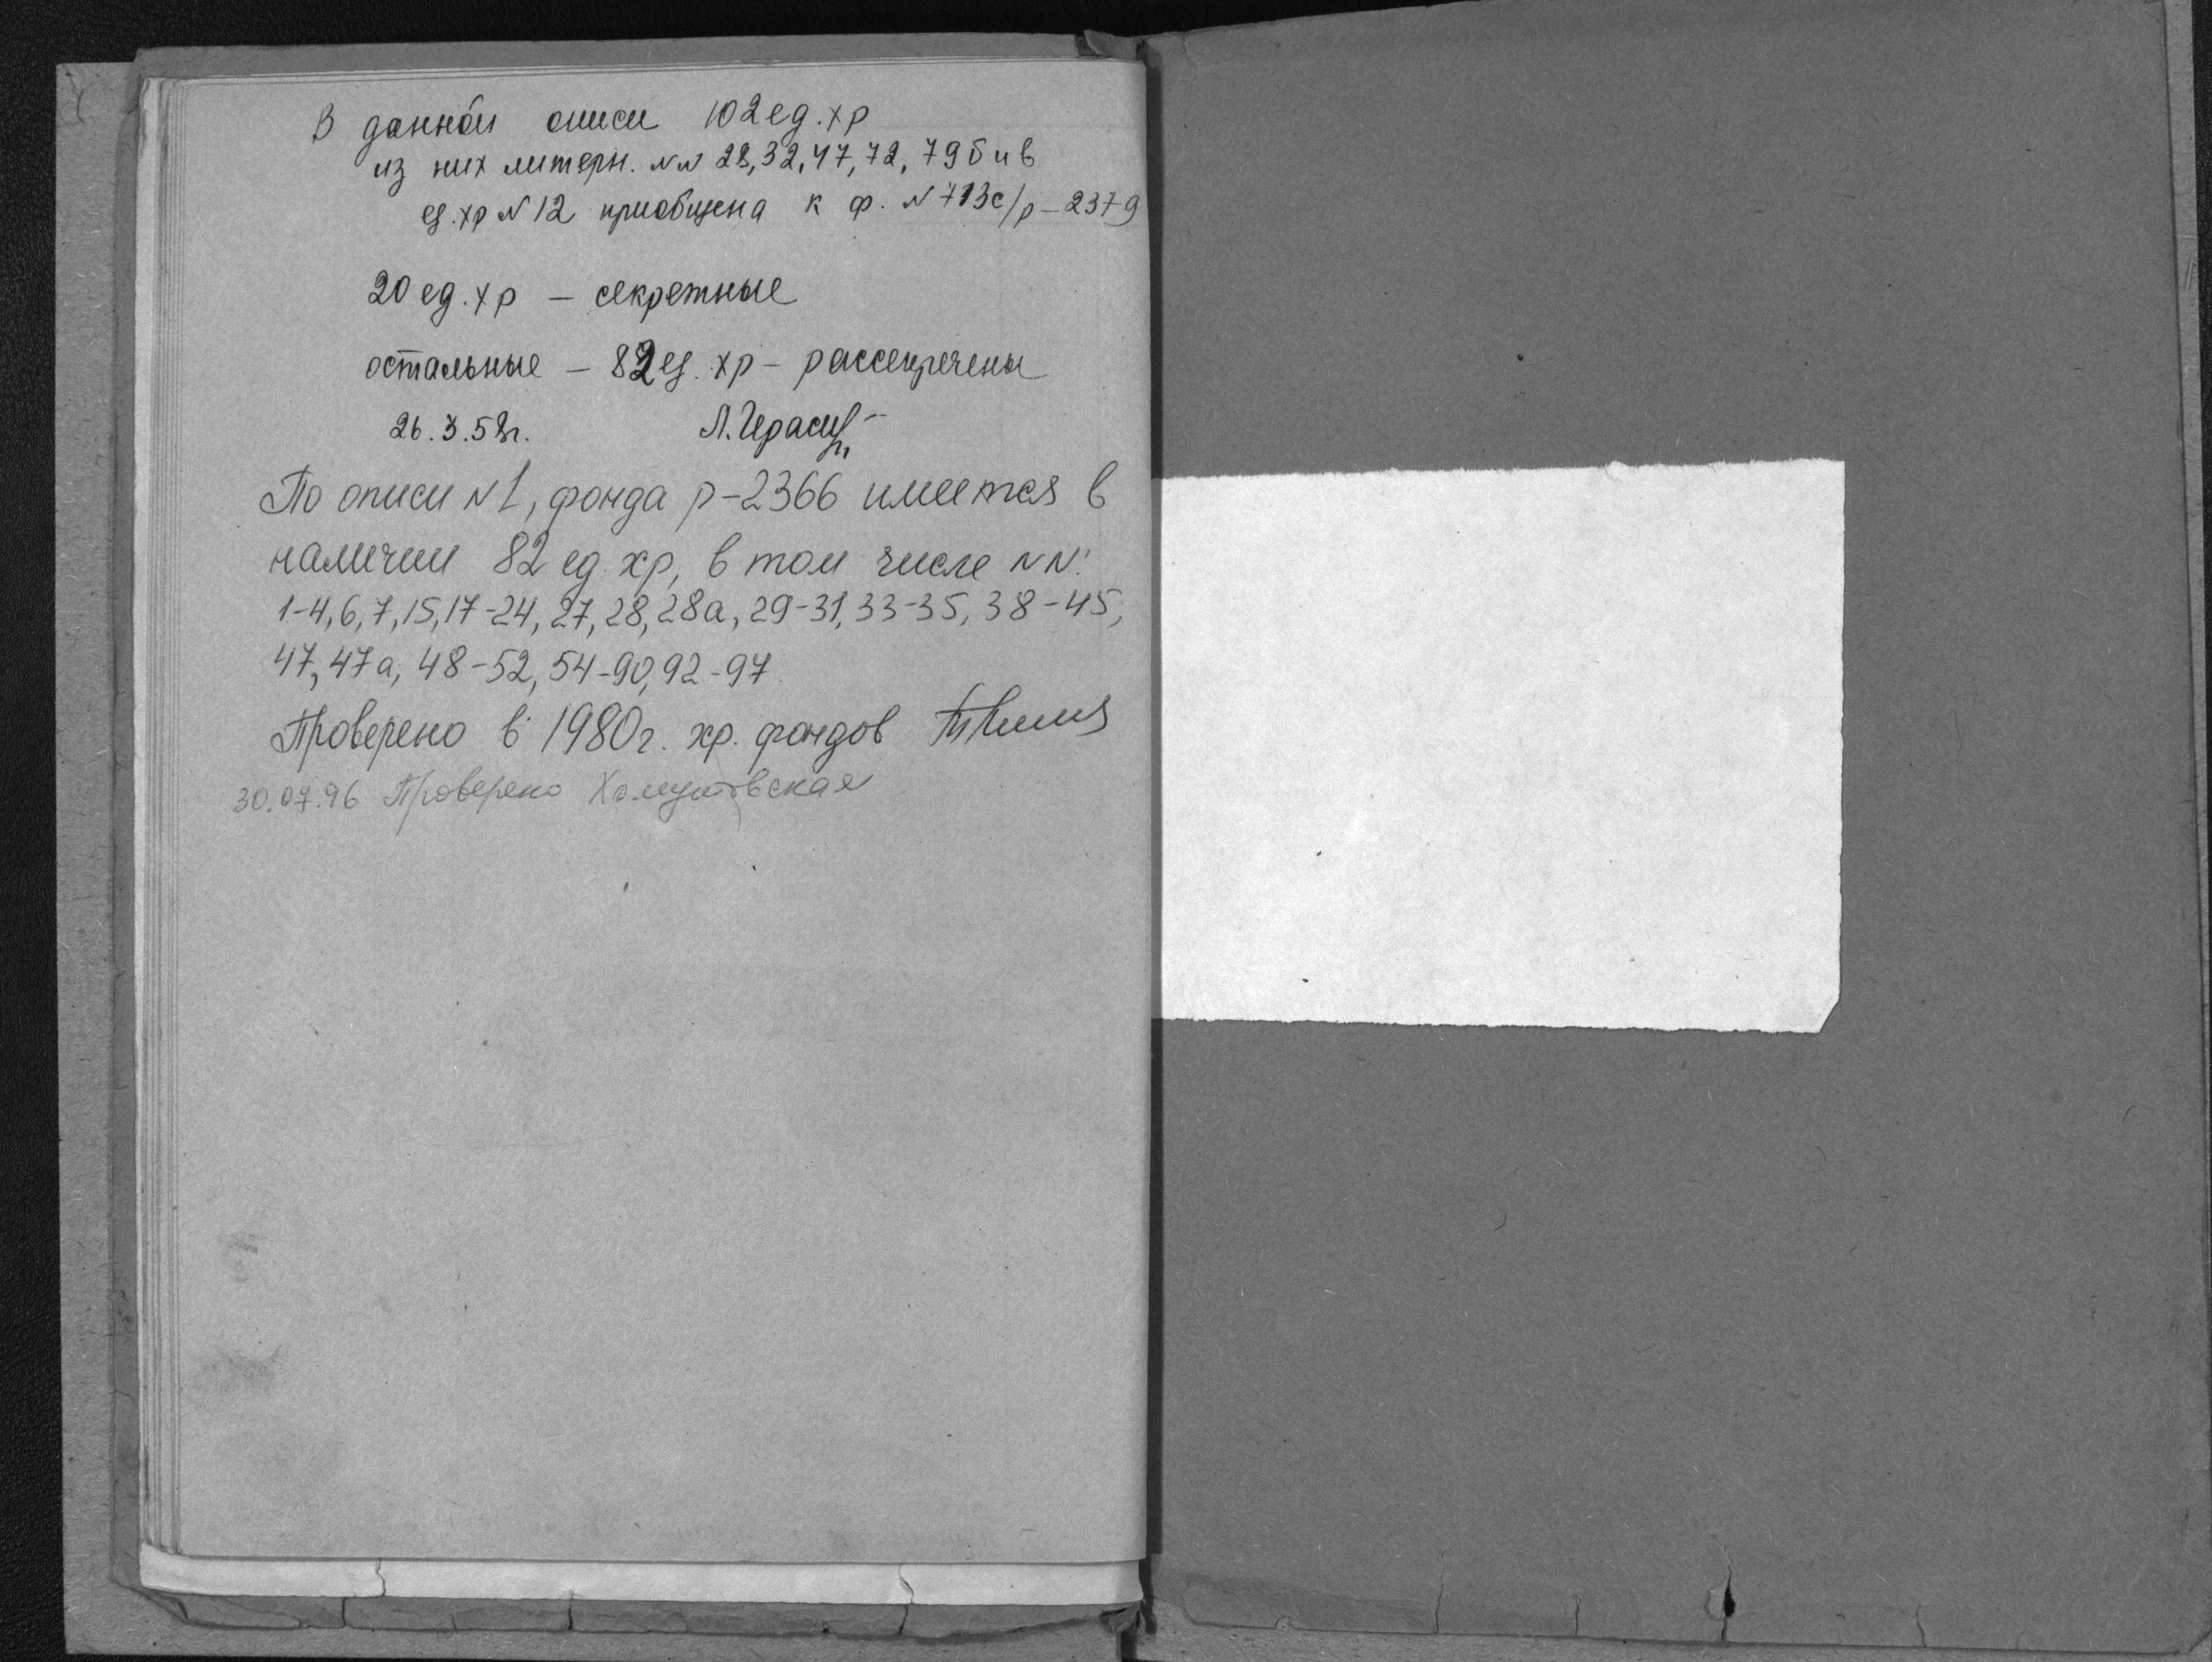 В данной описи 102 ед. хр
из них литерн. NN 28, 32, 47, 72, 79 б и в
ед. хр N 12 приобщена к ф. N 713с/р-2379
20 ед. хр – секретные
остальные – 82 ед. хр – рассекречены
26.3.58г. Л. Герасим
По описи N 1, фонда р-2366 имеется в
наличии 82 ед хр, в том числе NN:
1-4, 6, 7, 15, 17-24, 27, 28, 28а, 29-31, 33-35, 38-45,
47, 47а, 48-52, 54-90, 92-97
Проверено в 1980г. хр. фондов
30.07.96 Проверено Хомутовская